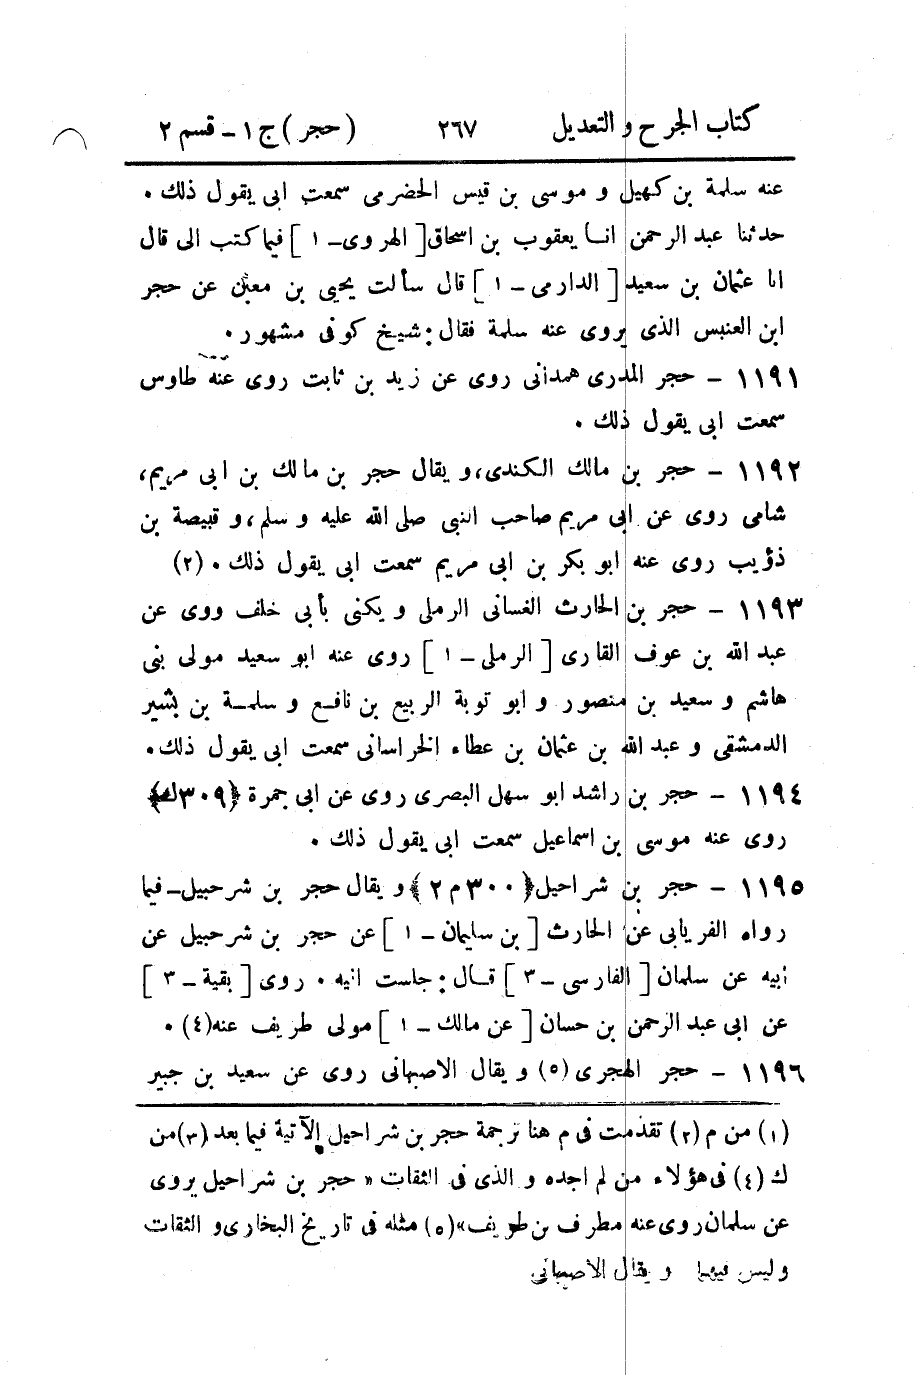 كتاب الجرح والتعديل ٢٦٧ (حجر) ج ١ - قسم ٢
عنه سلمة بن كهيل و موسى بن قيس الحضرمى سمعت ابى يقول ذلك .
حدثنا عبد الرحمن انا يعقوب بن اسحاق [ الهروى - ١ ] فيما كتب الى قال
انا عثمان بن سعيد [ الدارمى - ١ ] قال سألت يحيى بن معين عن حجر
ابن العنبس الذى يروى عنه سلمة فقال : شيخ كوفى مشهور .
١١٩١ - حجر المدرى همدانى روى عن زيد بن ثابت روى عنه طاوس
سمعت ابى يقول ذلك .
١١٩٢ - حجر بن مالك الكندى، و يقال حجر بن مالك بن ابى مريم،
شامى روى عن ابى مريم صاحب النبى صلى الله عليه و سلم، و قبيصة بن
ذؤيب روى عنه ابو بكر بن ابى مريم سمعت ابى يقول ذلك . (٢)
١١٩٣ - حجر بن الحارث الغسانى الرملى و يكنى بأبى خلف ووى عن
عبد الله بن عوف القارى [ الرملى - ١ ] روى عنه ابو سعيد مولى بنى
هاشم و سعيد بن منصور و ابو توبة الربيع بن نافع و سلمة بن بشير
الدمشقى و عبد الله بن عثمان بن عطاء الخراسانى سمعت ابى يقول ذلك .
١١٩٤ - حجر بن راشد ابو سهل البصرى روى عن ابى جمرة ﴿٣٠٩ك﴾
روى عنه موسى بن اسماعيل سمعت ابى يقول ذلك .
١١٩٥ - حجر بن شراحيل ﴿٣٠٠ م ٢﴾ و يقال حجر بن شرحبيل - فيما
رواه الفريابى عن الحارث [ بن سليمان - ١ ] عن حجر بن شرحبيل عن
ابيه عن سلمان [ الفارسى - ٣ ] قال : جلست اليه . روى [ بقية - ٣ ]
عن ابى عبد الرحمن بن حسان [ عن مالك - ١ ] مولى طريف عنه (٤) .
١١٩٦ - حجر الهجرى (٥) و يقال الاصبهانى روى عن سعيد بن جبير
(١) من م (٢) تقدمت فى م هنا ترجمة حجر بن شراحيل الآتية فيما بعد (٣) من
ك (٤) فى هؤلاء من لم اجده و الذى فى الثقات « حجر بن شراحيل يروى
عن سلمان روى عنه مطرف بن طويف » (٥) مثله فى تاريخ البخارى و الثقات
وليس فيهما و يقال الاصبهانى